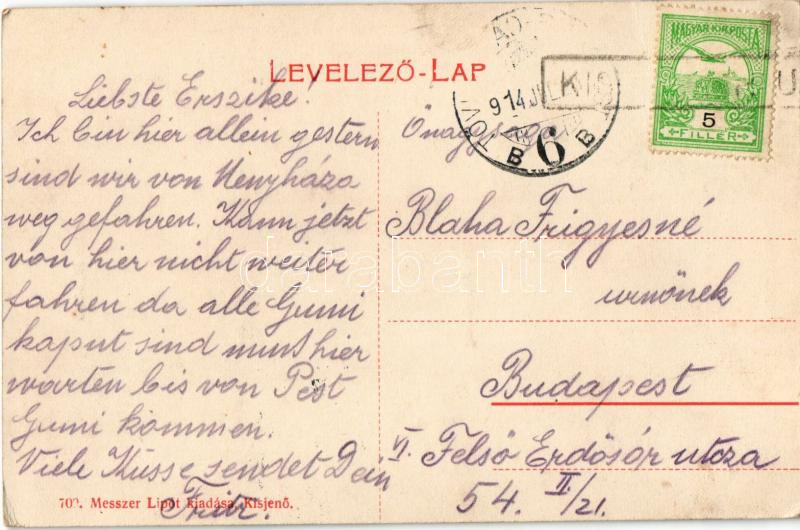 LEVELEZŐ-LAP
Liebste Erszike!
Ich bin hier allein gestern
sind wir von Menyháza
weg gefahren. Kann jetzt
von hier nicht weiter
fahren da alle Gumi
kaput sind muss hier
warten bis von Pest
Gumi kommen.
Viele Küsse sendet Dein
Fritz.
709. Messzer Lipót kiadása, Kisjenő.
MAGYAR KIR. POSTA
5
FILLÉR
914 JUL
6
B B
Önagysága
Blaha Frigyesné
urnőnek
Budapest
VI. Felső Erdősór utcza
54. II/21.
darabanth